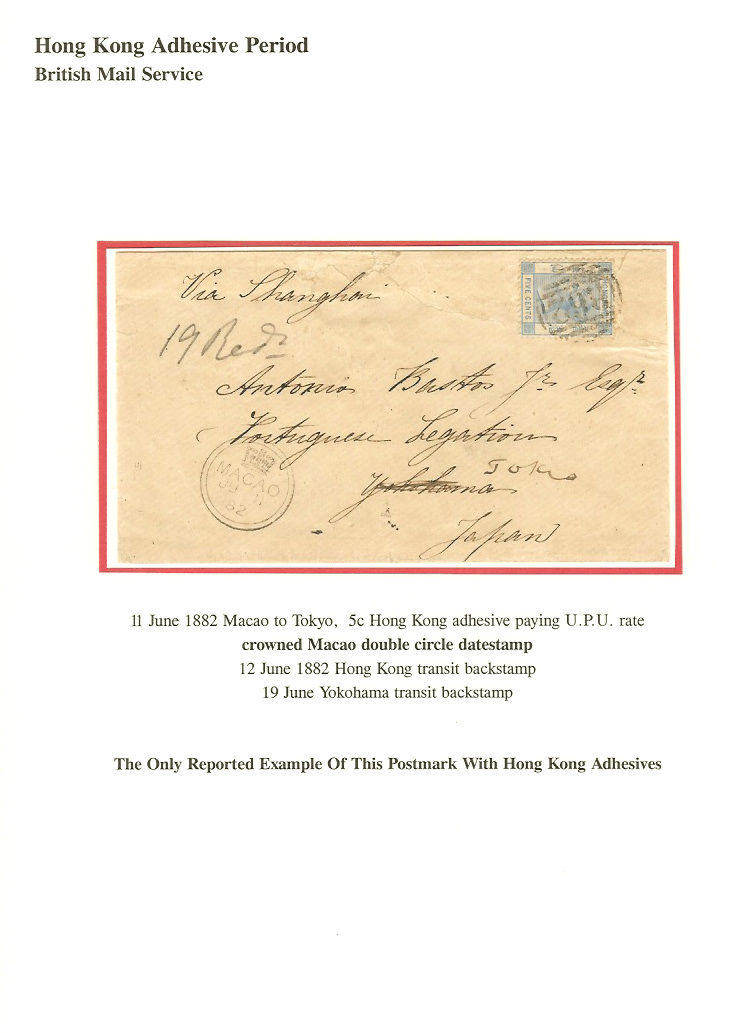 Hong Kong Adhesive Period
British Mail Service
Via Shanghai
FIVE CENTS
19 Recd
Antonio Bastos Jr. Esqr.
Portuguese Legation
Yokohama Tokio
Japan
MACAO
JU 11
82
11 June 1882 Macao to Tokyo, 5c Hong Kong adhesive paying U.P.U. rate
crowned Macao double circle datestamp
12 June 1882 Hong Kong transit backstamp
19 June Yokohama transit backstamp
The Only Reported Example Of This Postmark With Hong Kong Adhesives